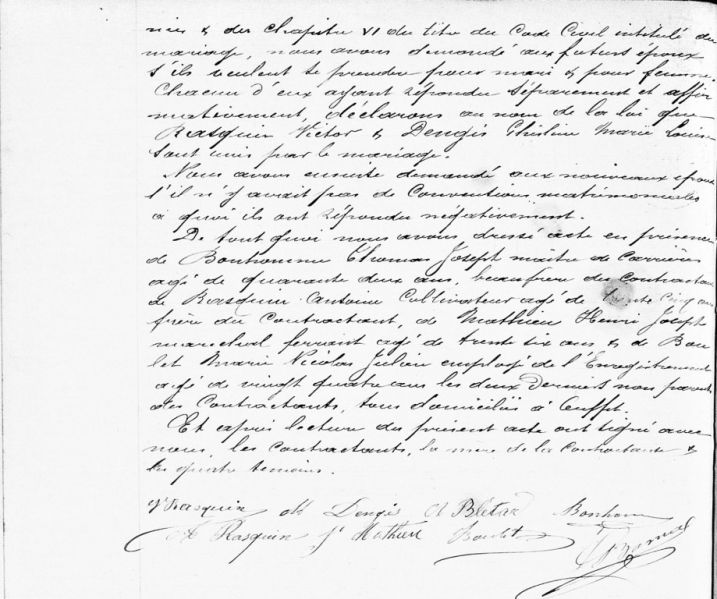 mis & du chapitre VI du titre du Code Civil intitulé du
mariage, nous avons demandé aux futurs époux
s'ils veulent se prendre pour mari & pour femme.
Chacun d'eux ayant répondu séparément et affir
mativement, déclarons au nom de la loi que
Rasquin Victor & Dengis Ghisline Marie Louise
sont unis par le mariage.
Nous avons ensuite demandé aux nouveaux époux
s'il n'y avait pas de Conventions matrimoniales
à quoi ils ont répondu négativement.
De tout quoi nous avons dressé acte en présence
de Bonhomme Thomas Joseph maître de Carrières
agé de quarante deux ans, beaufrère des contractants
de Rasquin Antoine Cultivateur agé de trente cinq ans
frère du Contractant, de Mathieu Henri Joseph
marechal ferrant agé de trente six ans & de Bou
let Marie Nicolas Julien employé de l'Enregistrement
agé de vingt quatre ans les deux derniers non parents
des Contractants, tous domiciliés à Ouffet.
Et après lecture du présent acte ont signé avec
nous, les contractants, la mère de la contractante &
les quatre temoins.
V Rasquin M Dengis Bonhomme
A Rasquin J Mathieu Boulet